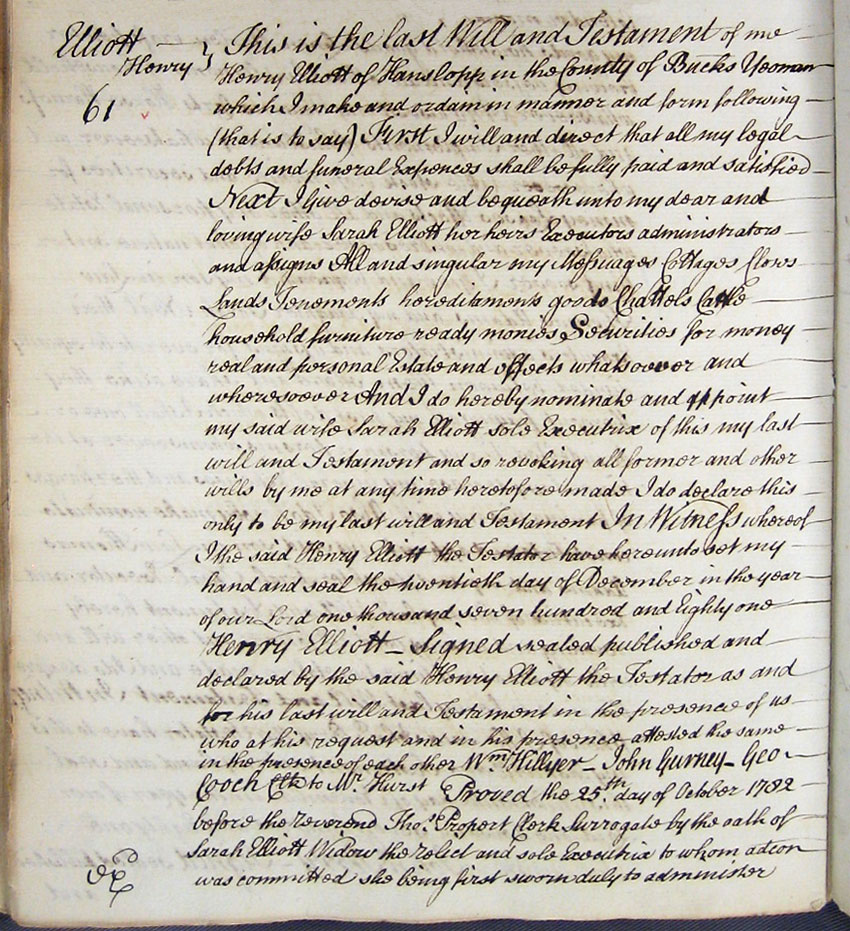 Elliott
Henry }
61
This is the last Will and Testament of me
Henry Elliott of Hanslopp in the County of Bucks Yeoman
which I make and ordain in manner and form following
(that is to say) First I will and direct that all my legal
debts and funeral Expences shall be fully paid and satisfied
Next I Give devise and bequeath unto my dear and
loving wife Sarah Elliott her heirs Executors administrators
and assigns All and singular my Messuages Cottages Closes
Lands Tenements hereditaments goods Chattels Cattle
household furniture ready monies Securities for money
real and personal Estate and effects whatsoever and
wheresoever And I do hereby nominate and appoint
my said wife Sarah Elliott sole Executrix of this my last
will and Testament and so revoking all former and other
wills by me at any time heretofore made I do declare this
only to be my last will and Testament In Witness whereof
I the said Henry Elliott the Testator have hereunto set my
hand and seal the twentieth day of December in the year
of our Lord one thousand seven hundred and Eighty one
Henry Elliott – Signed sealed published and
declared by the said Henry Elliott the Testator as and
for his last will and Testament in the presence of us
who at his request and in his presence attested the same
in the presence of each other Wm Hillyer – John Gurney – Geo
Cooch Clk to Mr. Hurst Proved the 25th. day of October 1782
before the Reverend Thos. Propert Clerk Surrogate by the oath of
Sarah Elliott Widow the relict and sole Executrix to whom adcon
was committed she being first sworn duly to administer
Ex